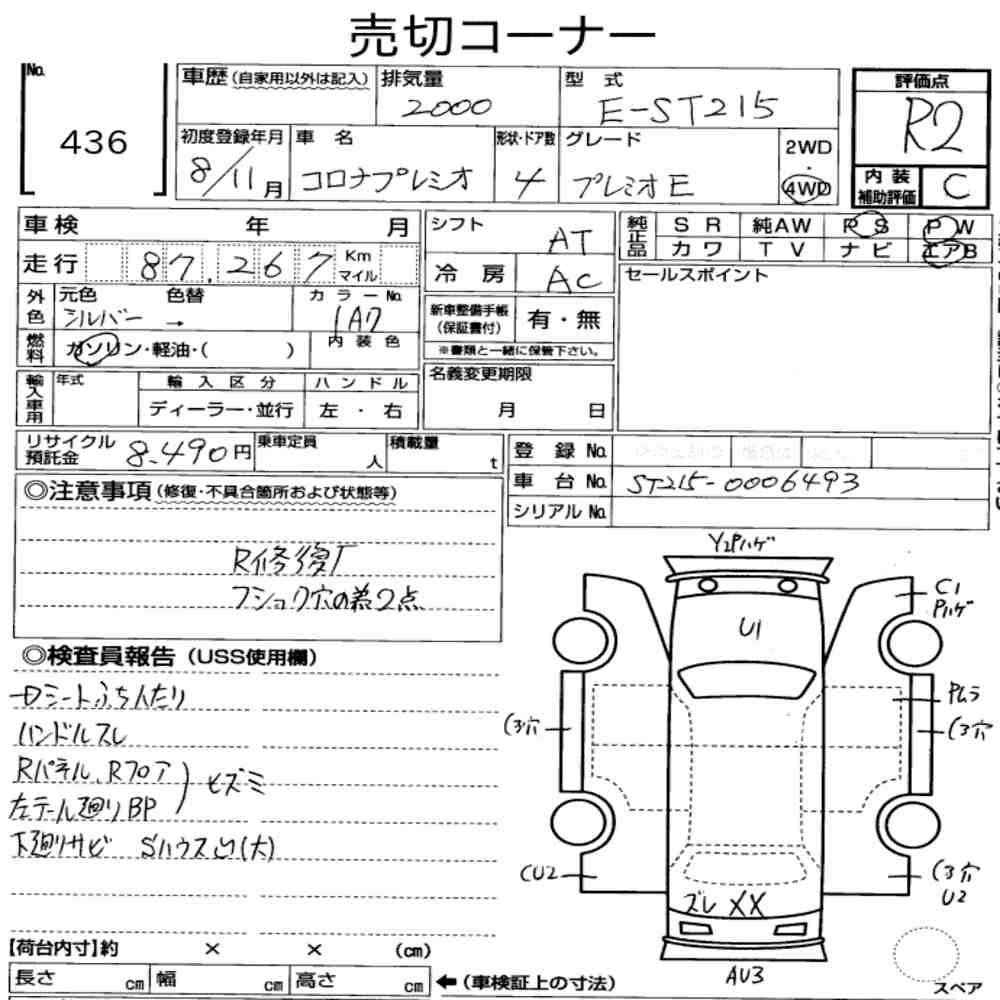 売切コーナー
No.
436
車歴(自家用以外は記入)
排気量
2000
型 式
E-ST215
評価点
R2
初度登録年月
8/11月
車 名
コロナプレミオ
形状・ドア数
4
グレード
プレミオE
2WD
・
4WD
内 装
補助評価
C
車検 年 月
走行 87,267 Km
マイル
外色
元色 色替
シルバー →
カラーNo.
1A7
燃料
ガソリン・軽油・( )
内 装 色
輸入車用
年式
輸 入 区 分
ハ ン ド ル
ディーラー・並行
左 ・ 右
シフト
AT
冷 房
AC
新車整備手帳
(保証書付)
有・無
※書類と一緒に保管下さい。
名義変更期限
月 日
純正品
S R 純AW P S P W
カ ワ T V ナ ビ エアB
セールスポイント
リサイクル
預託金
8,490円
乗車定員
人
積載量
t
登 録 No.
車 台 No. ST215-0006493
シリアル No.
◎注意事項(修復・不具合箇所および状態等)
R修復厂
◎検査員報告(USS使用欄)
ハンドルスレ
Rパネル、Rフロア
左テール廻りBP
ヒズミ
下廻りサビ
Y2Pハゲ
U1
C1
Pハゲ
Pムラ
CU2
U2
ズレ XX
AU3
スペア
【荷台内寸】約 × × (cm)
長さ cm 幅 cm 高さ cm
←(車検証上の寸法)